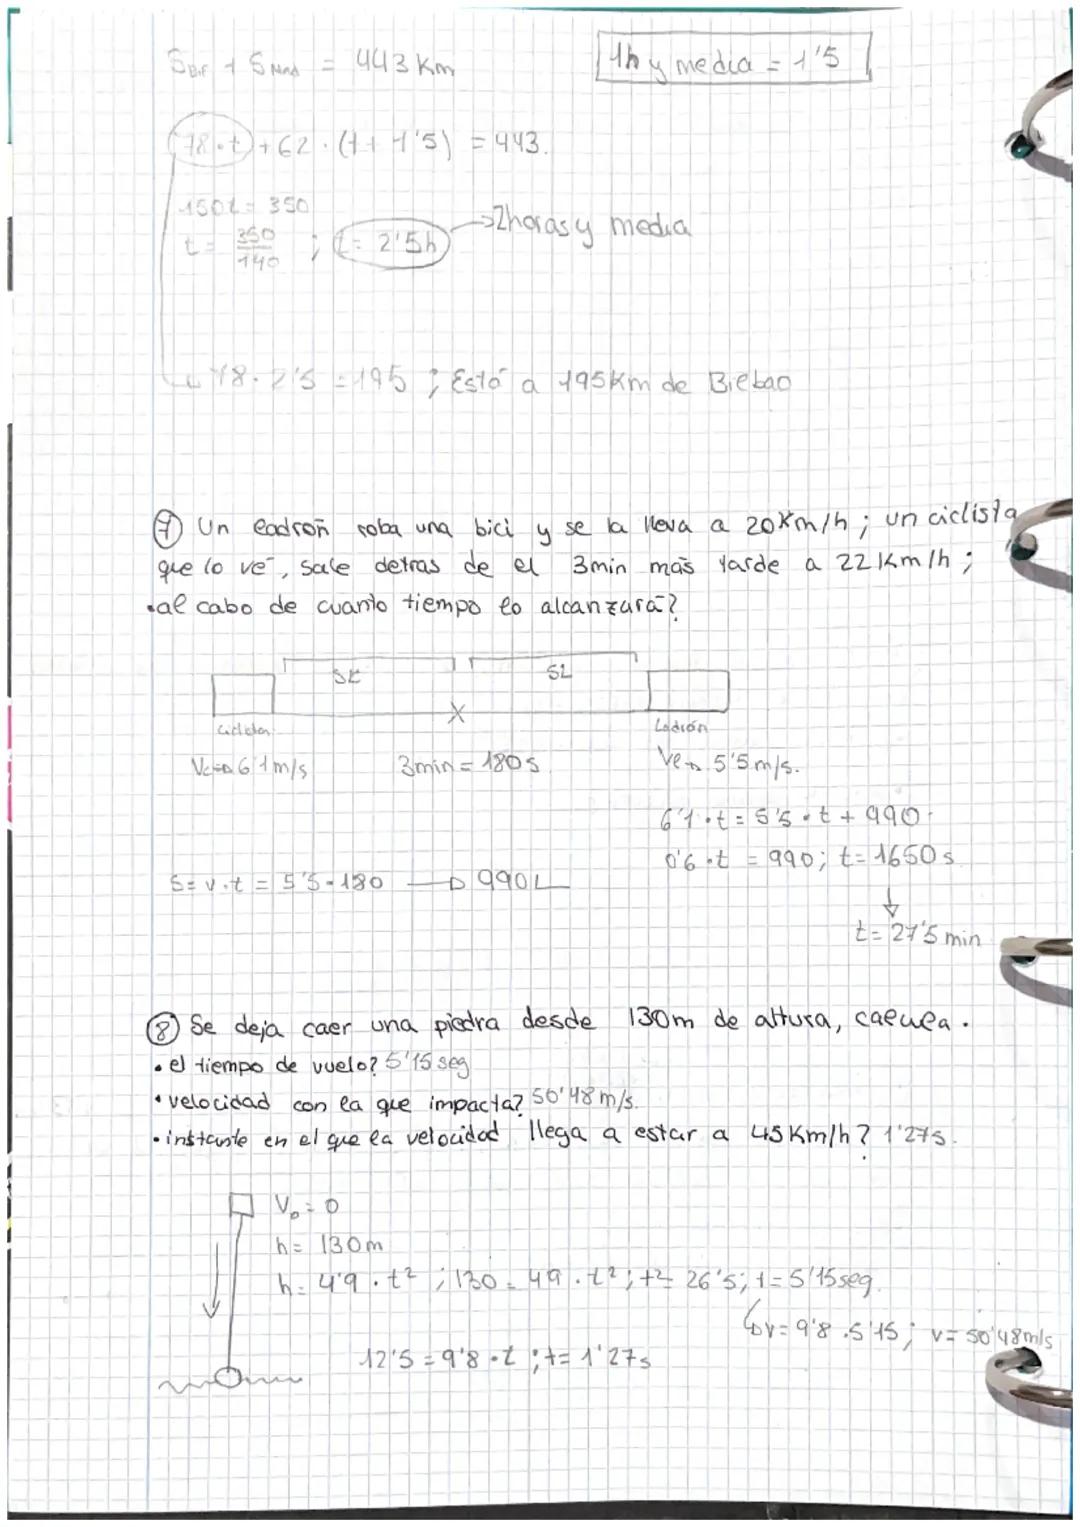 SBil + SMad = 443 Km
1h y media = 1'5
78·t + 62·(t + 1'5) = 443.
150t = 350
t = 350/140 ; t = 2'5h → 2horas y media
78·2'5 = 195 ; Está a 195Km de Bilbao
⑦ Un ladrón roba una bici y se la lleva a 20Km/h ; un ciclista
que lo ve, sale detras de el 3min más tarde a 22Km/h ;
• al cabo de cuanto tiempo lo alcanzará?
SL
X
Ciclista
Ladrón
Vc→ 6'1m/s
3min = 180s
Ve→ 5'5m/s.
6'1·t = 5'5·t + 990.
0'6·t = 990; t = 1650s
S = v·t = 5'5·180 → 990
↓
t = 27'5 min
⑧ Se deja caer una piedra desde 130m de altura, calcula.
• el tiempo de vuelo? 5'15seg
• velocidad con la que impacta? 50'48m/s.
• instante en el que la velocidad llega a estar a 45Km/h? 1'27s.
V₀ = 0
h = 130m
h = 4'9·t² ; 130 = 49·t² ; t² = 26'5; t = 5'15seg.
→ v = 9'8·5'15 ; v = 50'48m/s
12'5 = 9'8·t ; t = 1'27s